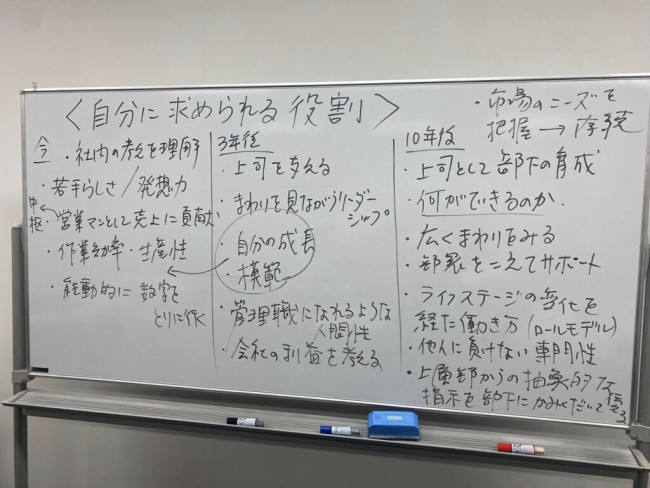 〈自分に求められる役割〉
・市場のニーズを
把握→存続
今
・社内の考えを理解
・若手らしさ/発想力
中枢
・営業マンとして売上に貢献
・作業効率・生産性
・能動的に数字を
とりに行く
3年後
・上司を支える
・まわりを見ながらリーダー
シップ
・自分の成長
・模範
・管理職になれるような
人間性
・会社の利益を考える
10年後
・上司として部下の育成
・何ができるのか.
・広くまわりをみる
・部署をこえてサポート
・ライフステージの変化を
経た働き方(ロールモデル)
・他人に負けない専門性
・上層部からの抽象的な
指示を部下にかみくだいて伝える